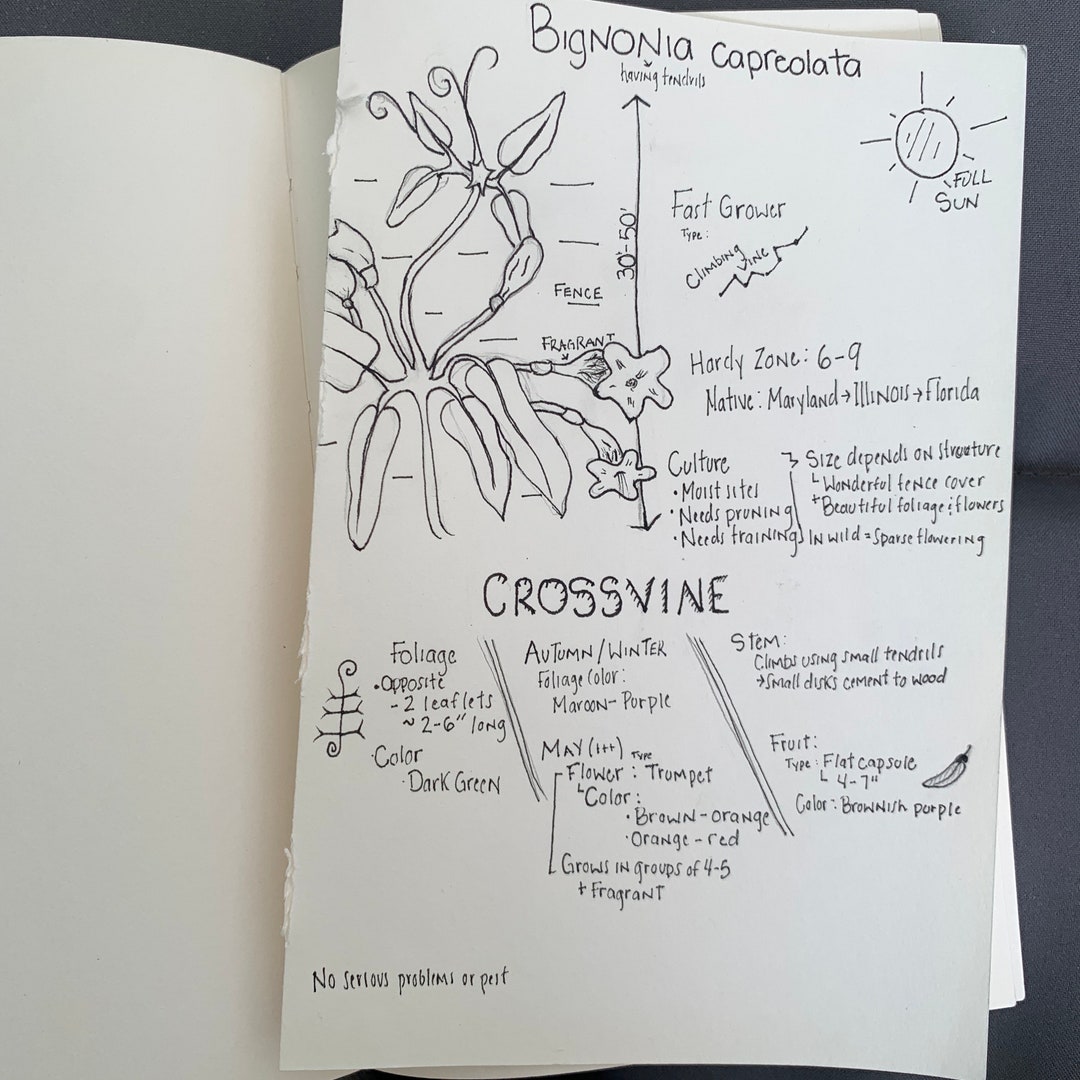 Bignonia capreolata
having tendrils
Full
Sun
30'-50'
Fast Grower
Type:
Climbing
Vine
Fence
Fragrant
Hardy Zone: 6-9
Native: Maryland→Illinois→Florida
Culture
• Moist sites
• Needs pruning
• Needs training
Size depends on structure
Wonderful fence cover
+ Beautiful foliage & flowers
In wild = Sparse flowering
CROSSVINE
Foliage
• Opposite
- 2 leaflets
~ 2-6" long
• Color
• Dark Green
Autumn/Winter
Foliage Color:
Maroon-Purple
May (1++) Type
Flower: Trumpet
Color:
• Brown-orange
• Orange-red
Grows in groups of 4-5
+ Fragrant
Stem:
Climbs using small tendrils
→ Small disks cement to wood
Fruit:
Type: Flat capsule
4-7"
Color: Brownish purple
No serious problems or pest